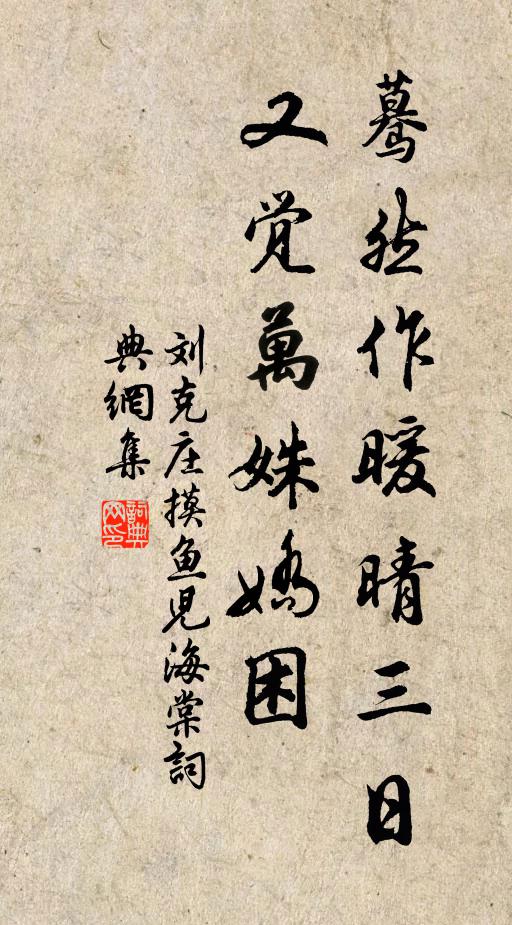 蓦然作暖晴三日
又觉萬姝嬌困
刘克庄摸鱼児海棠詞
典網集
詞典网印